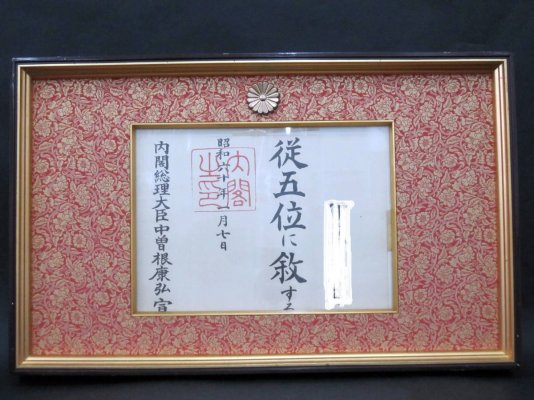 従五位に叙する
昭和六十年 月七日
内閣之印
内閣総理大臣中曽根康弘宣